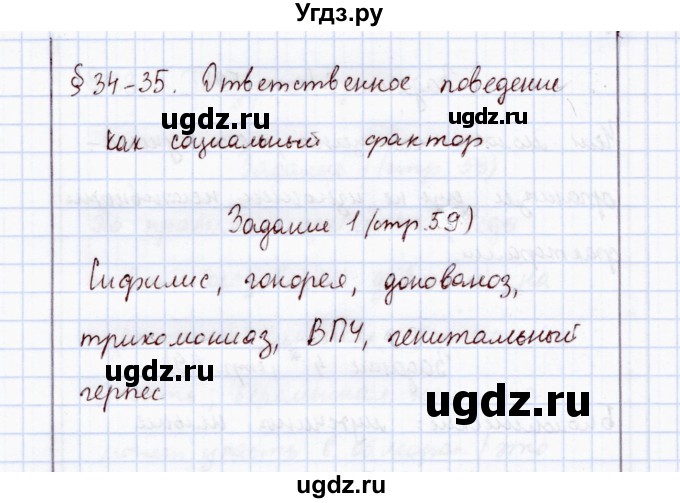 Угдз.ру
§ 34-35. Ответственное поведение
ugdz.ru ugdz.ru
как социальный фактор
Задание 1 (стр. 59)
ugdz.ru
Сифилис, гонорея, донованоз,
трихомониаз, ВПЧ, генитальный
ugdz.ru
герпес
ugdz.ru
Угдз.ру